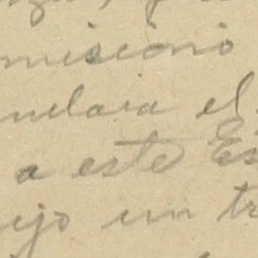 misionó
nulara el
a este Es
ijo un tr